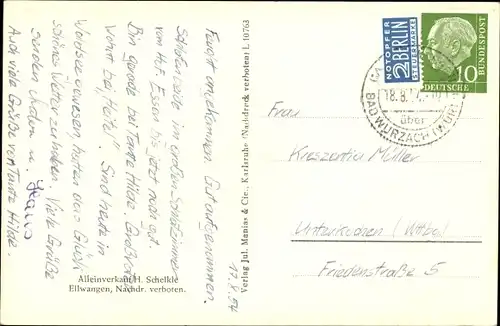 Feucht angekommen. Gut aufgenommen.
Schlafen eine im großen Sanitzimmer
vom H.F. Essen bis jetzt noch gut.
Bin gerade bei Tante Hilde.
Vormt. bei "Sind heute in
Waldsee gewesen, hatten das Glück
schönes Wetter zu haben. Viele Grüße
senden Anton u.
Klaus
Auch viele Grüße von Tante Hilde.
Alleinverkauf H. Schelkle
Ellwangen, Nachdr. verboten.
17.8.54
Verlag Jul. Manias & Cie., Karlsruhe (Nachdruck verboten) L 10763
NOTOPFER
2 BERLIN
STEUERMARKE
DEUTSCHE
BUNDESPOST
10
18.8.54
über
BAD WURZACH (WÜRTT)
Frau
Kreszentia Müller
Unterkochen / (Wttbg.)
Friedenstraße 5